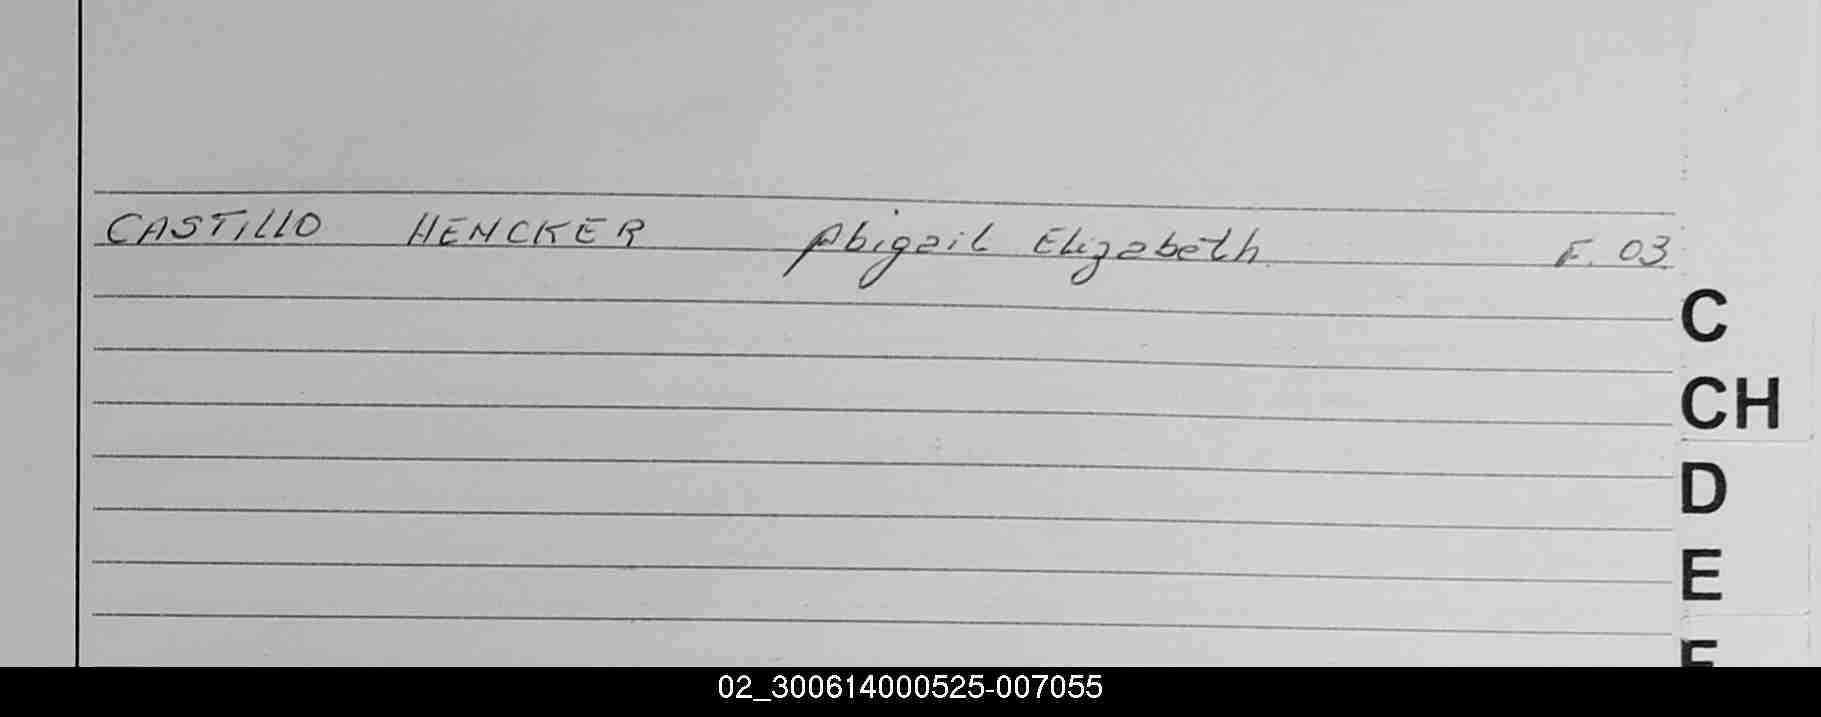 CASTILLO HENCKER Abigail Elizabeth F. 03
C
CH
D
E
F
02_300614000525-007055